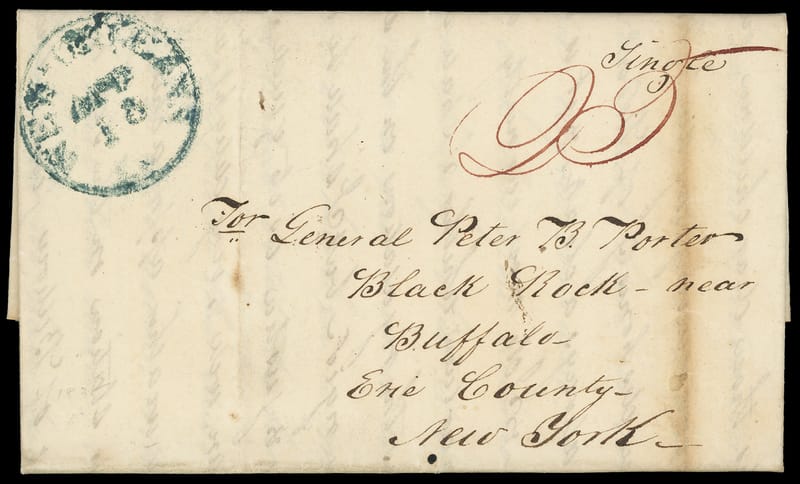 NEW-ORLEANS
APR
18
Single
25
For General Peter B. Porter
Black Rock - near
Buffalo -
Erie County -
New York -